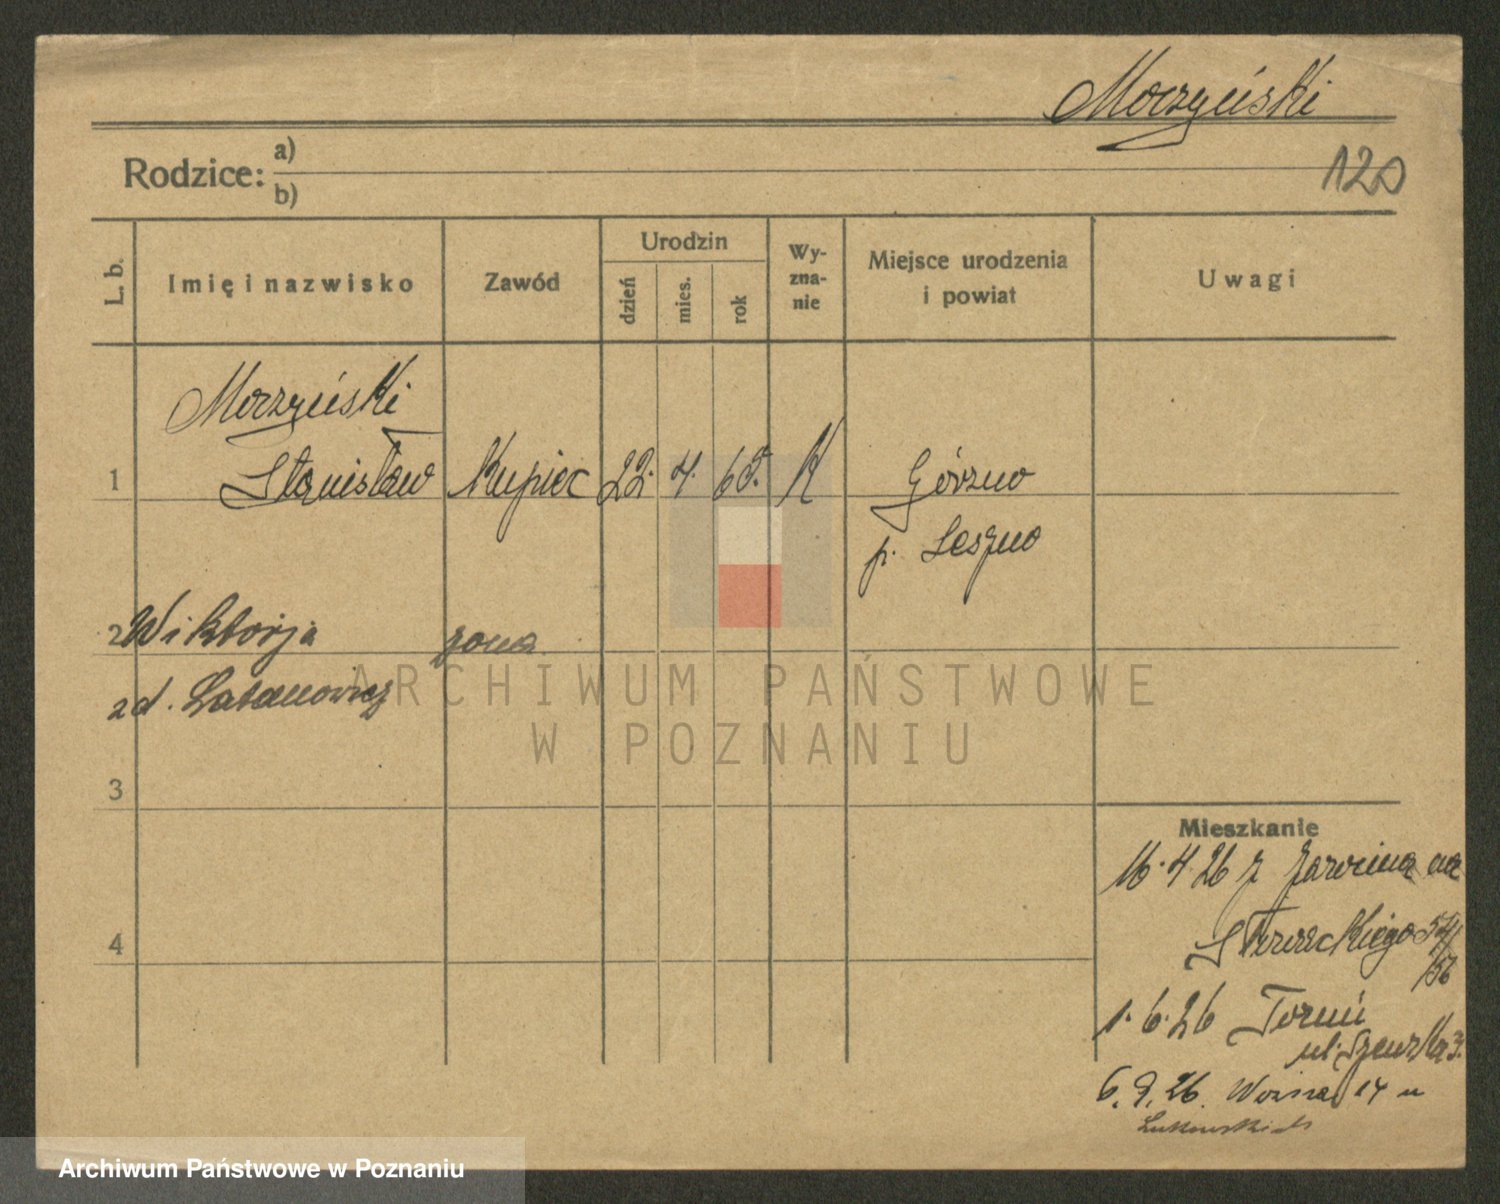 Moczyński
Rodzice: a)
b)
120
L. b.
Imię i nazwisko
Zawód
Urodzin
dzień
mies.
rok
Wy-
zna-
nie
Miejsce urodzenia
i powiat
Uwagi
Moczyński
1 Stanisław Kupiec 22. 4. 65. K Górzno
p. Leszno
2 Wiktorja żona
zd.
3
4
Mieszkanie
16.4.26 z Jarocina na
Strzeleckiego
1.6.26 Toruń
ul. Szewska 3.
6.9.26. Woźna 14 u
ARCHIWUM PAŃSTWOWE
W POZNANIU
Archiwum Państwowe w Poznaniu